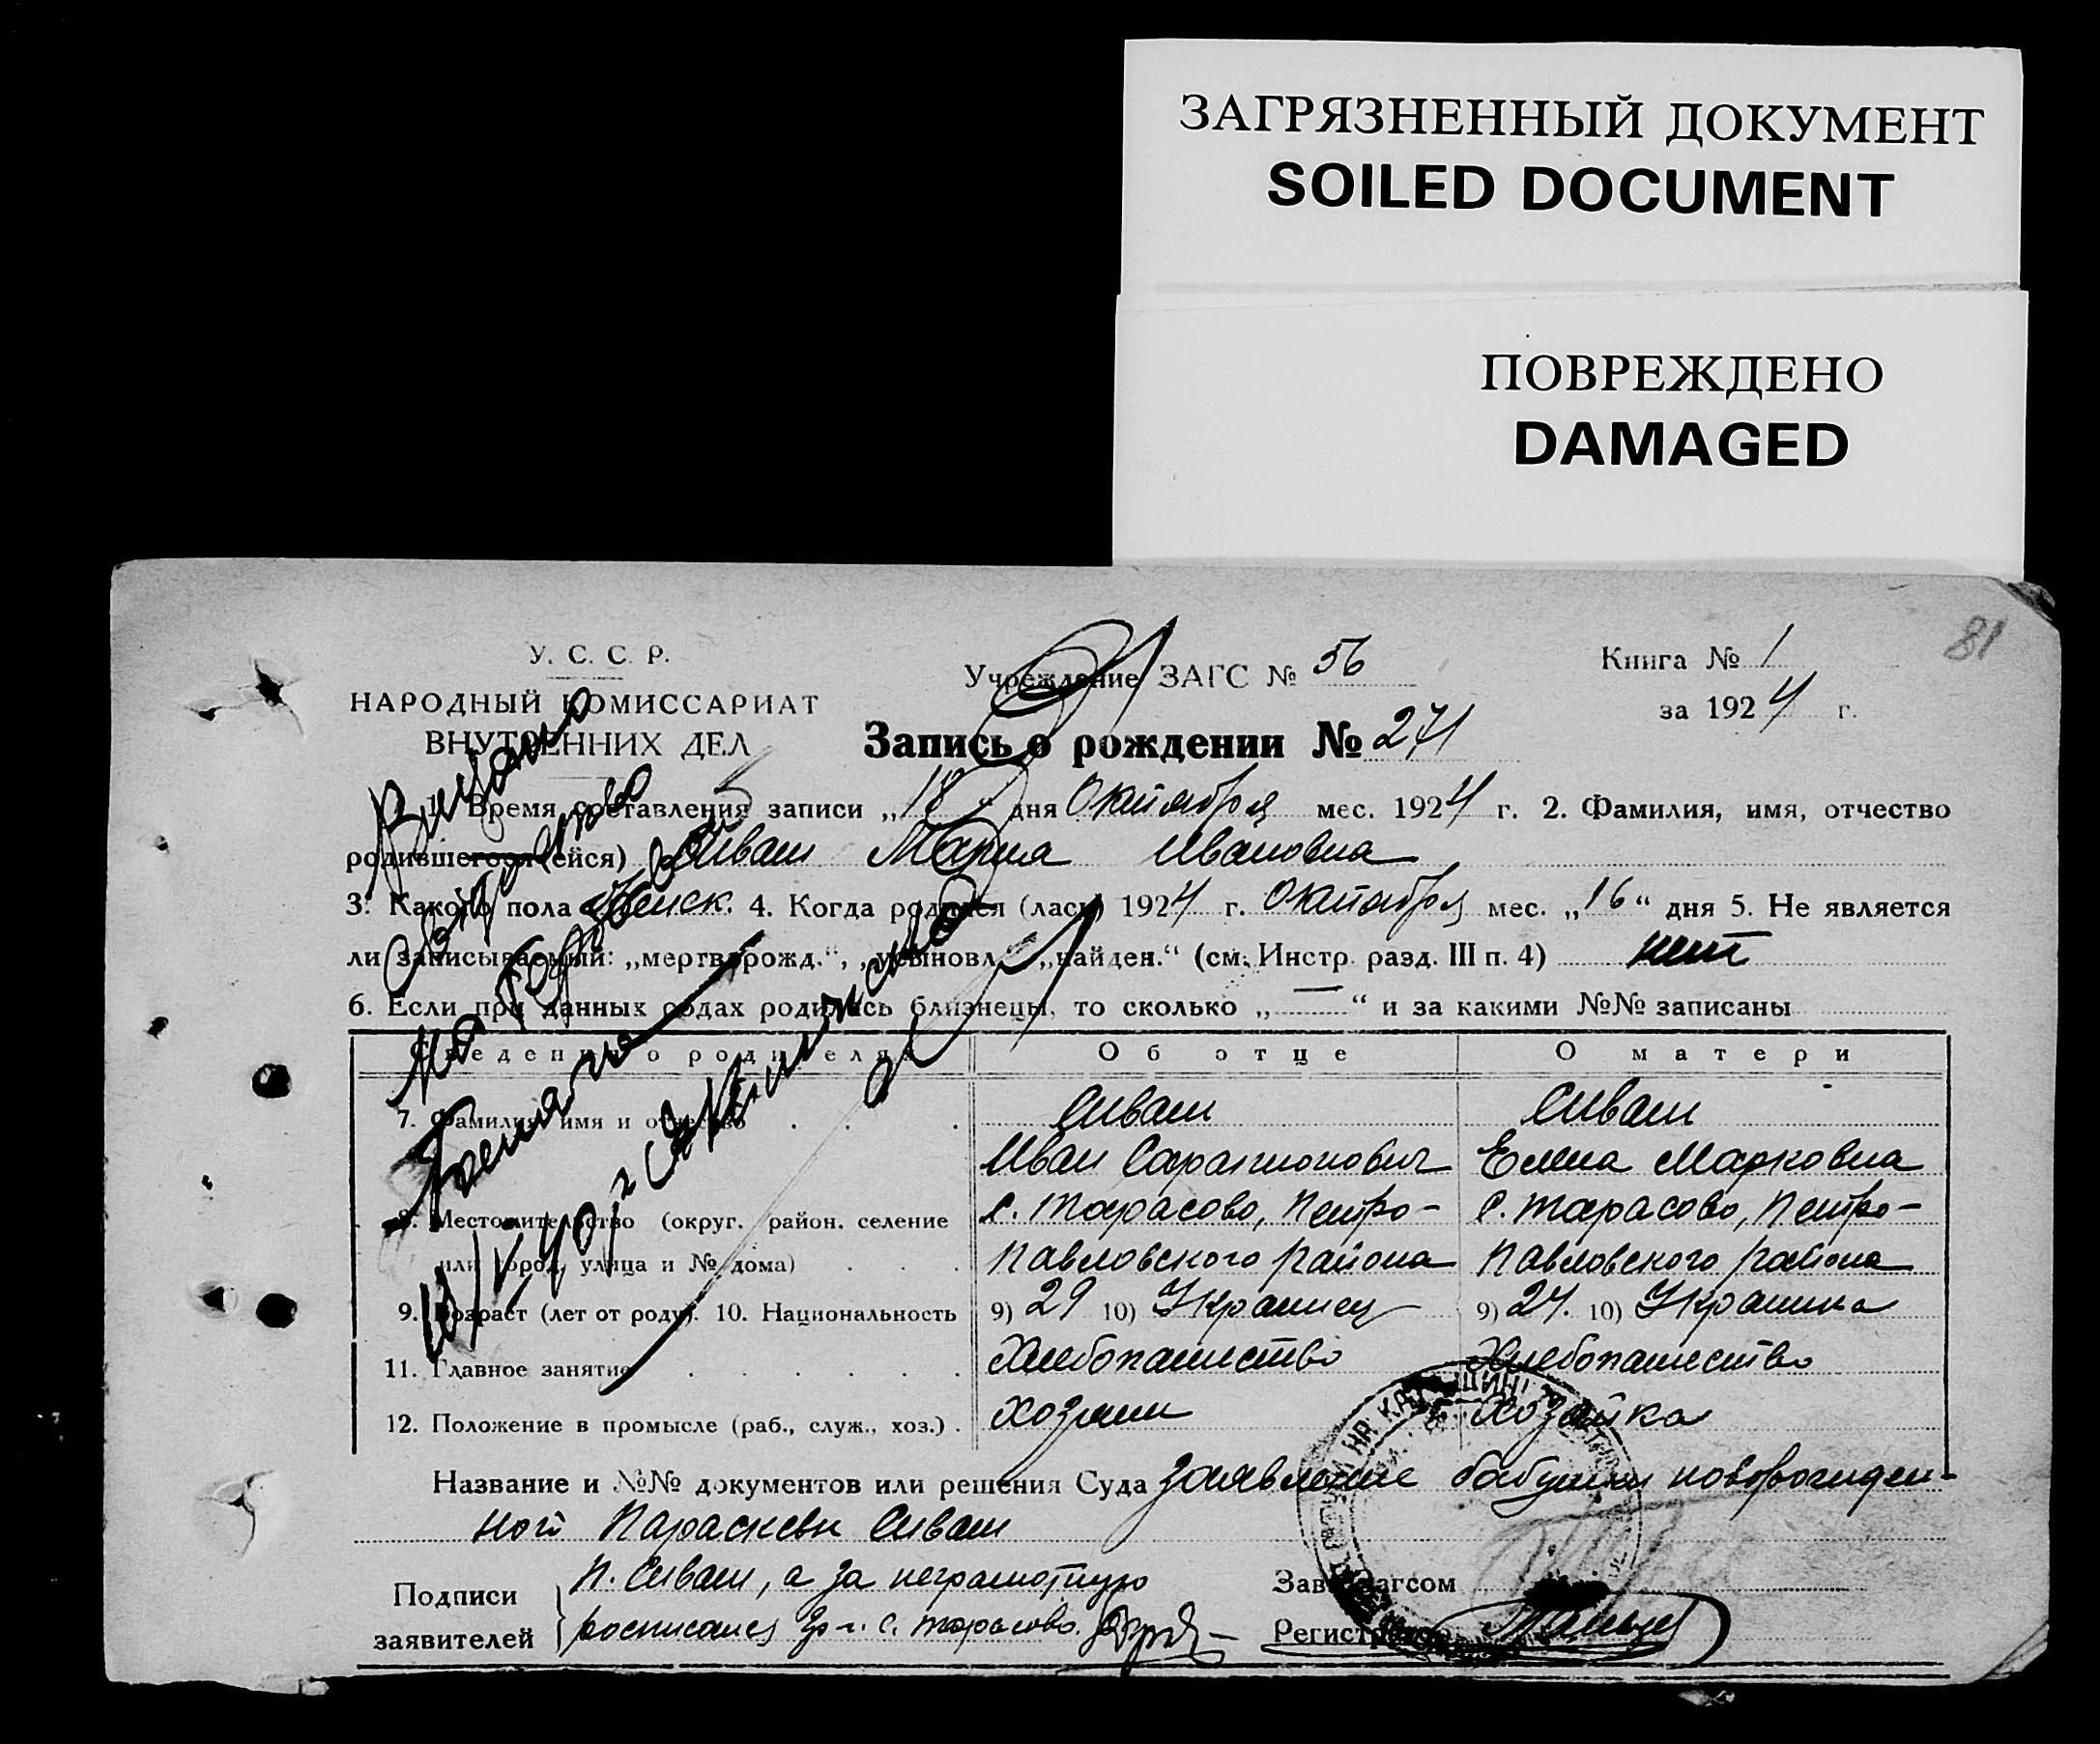 ЗАГРЯЗНЕННЫЙ ДОКУМЕНТ
SOILED DOCUMENT
ПОВРЕЖДЕНО
DAMAGED
81
У. С. С. Р.
НАРОДНЫЙ КОМИССАРИАТ
ВНУТРЕННИХ ДЕЛ
Учреждение ЗАГС № 56
Книга № 1
за 1924 г.
Запись о рождении № 271
1. Время составления записи „18“ дня Октября мес. 1924 г. 2. Фамилия, имя, отчество
родившегося (ейся) Сиваш Мария Ивановна
3. Какого пола женск. 4. Когда родился (лась) 1924 г. Октября мес. „16“ дня 5. Не является
ли записываемый: „мертворожд.“, „усыновл.“, „найден.“ (см. Инстр. разд. III п. 4) нет
6. Если при данных родах родились близнецы, то сколько „—“ и за какими №№ записаны
Сведения о родителях Об отце О матери
7. Фамилия, имя и отчество Сиваш Сиваш
Иван Сарапионович Елена Марковна
8. Местожительство (округ. район. селение с. Тарасово, Петро- с. Тарасово, Петро-
или город, улица и № дома) павловского района павловского района
9. Возраст (лет от роду). 10. Национальность 9) 29 10) Украинец 9) 27. 10) Украинка
11. Главное занятие Хлебопашество Хлебопашество
12. Положение в промысле (раб., служ., хоз.) хозяин хозяйка
Название и №№ документов или решения Суда заявление бабушки новорожден-
ной Параскевы Сиваш
Подписи П. Сиваш, а за неграмотную Зав. Загсом
заявителей росписался гр-н. с. Тарасово. Регистр
Выдано